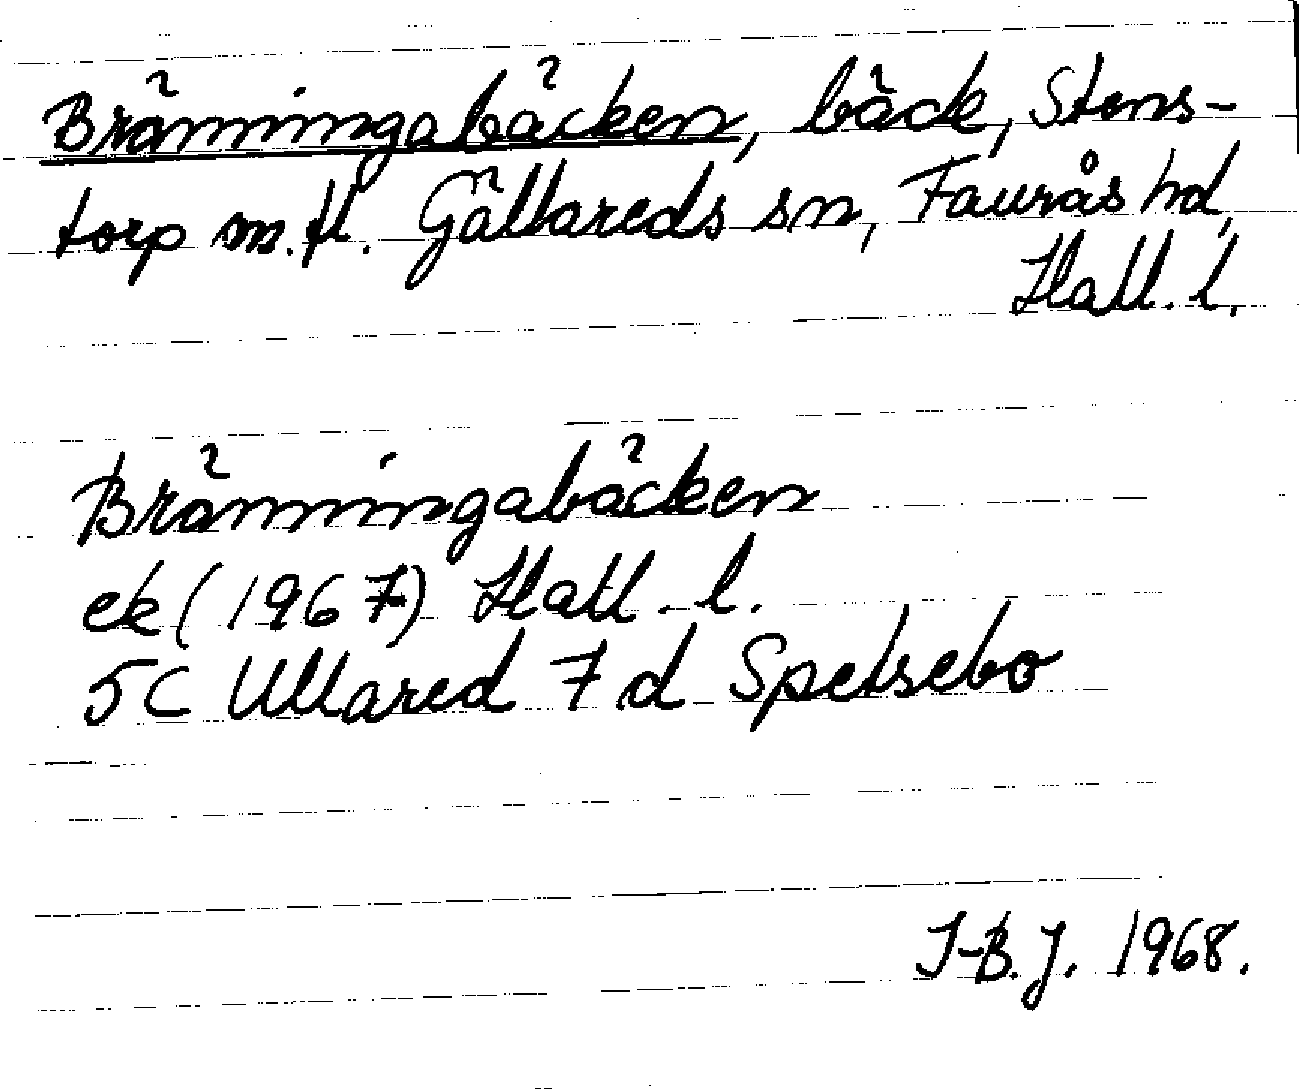 Bränningabäcken, bäck, Stens-
torp m.fl. Gällareds sn, Faurås hd,
Hall. l.
Bränningabäcken
ek (1967) Hall. l.
5C Ullared 7 d Spetsebo
I-B.J. 1968.